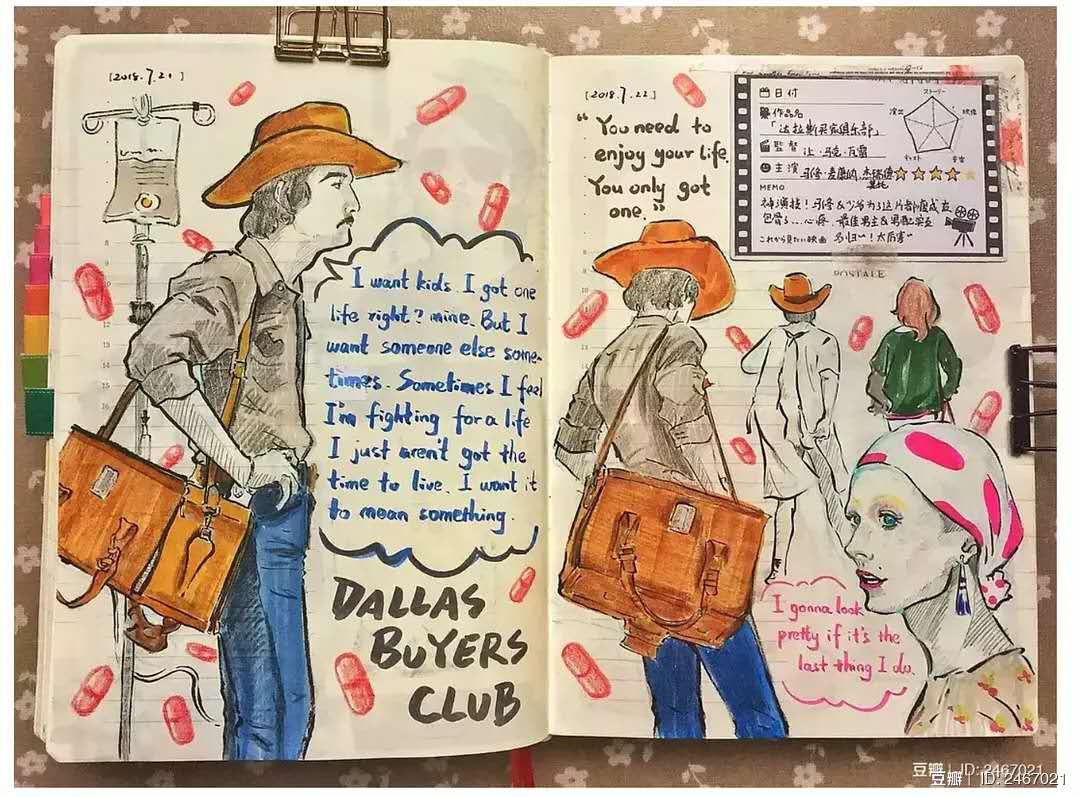 [2018.7.21]
I want kids. I got one
life right? mine. But I
want someone else some-
times. Sometimes I feel
I'm fighting for a life
I just aren't got the
time to live. I want it
to mean something.
DALLAS
BUYERS
CLUB
[2018.7.22]
"You need to
enjoy your life.
You only got
one."
日付
作品名
「达拉斯买家俱乐部」
監督 让·马克·瓦雷
主演 马修·麦康纳 杰瑞德
莱托
ストーリー
映像
音楽
キャスト
演出
MEMO
神演技!马修&少爷为了这片都瘦成皮
包骨了...心疼.最佳男主&男配实至
これから見たい映画 名归~!太厉害~
POSTALE
I gonna look
pretty if it's the
last thing I do.
豆瓣 | ID: 2467021
豆瓣 | ID: 2467021